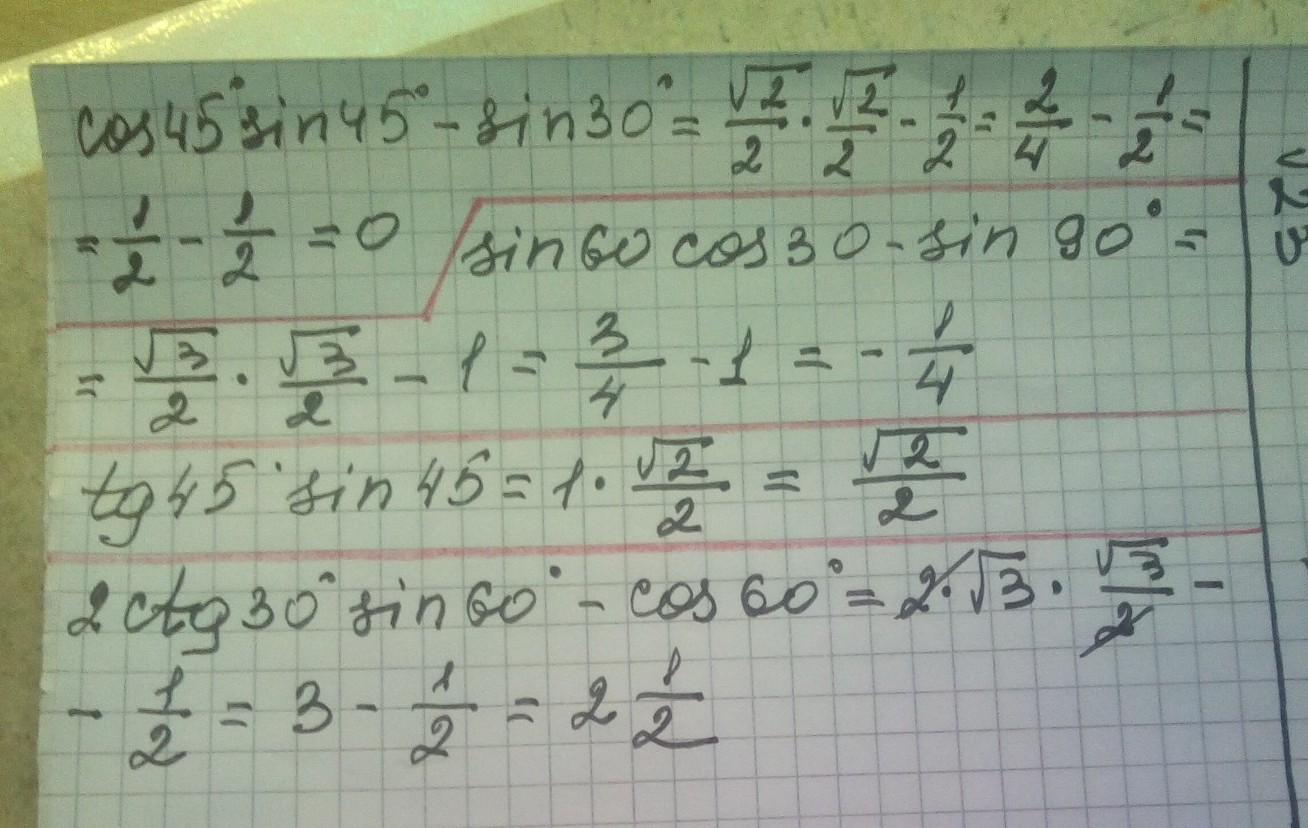 cos45° sin45° - sin30° = √2/2 · √2/2 - 1/2 = 2/4 - 1/2 =
= 1/2 - 1/2 = 0
sin60 cos30 - sin 90° =
= √3/2 · √3/2 - 1 = 3/4 - 1 = - 1/4
tg45° sin45 = 1 · √2/2 = √2/2
2ctg30° sin60° - cos60° = 2 · √3 · √3/2 -
- 1/2 = 3 - 1/2 = 2 1/2